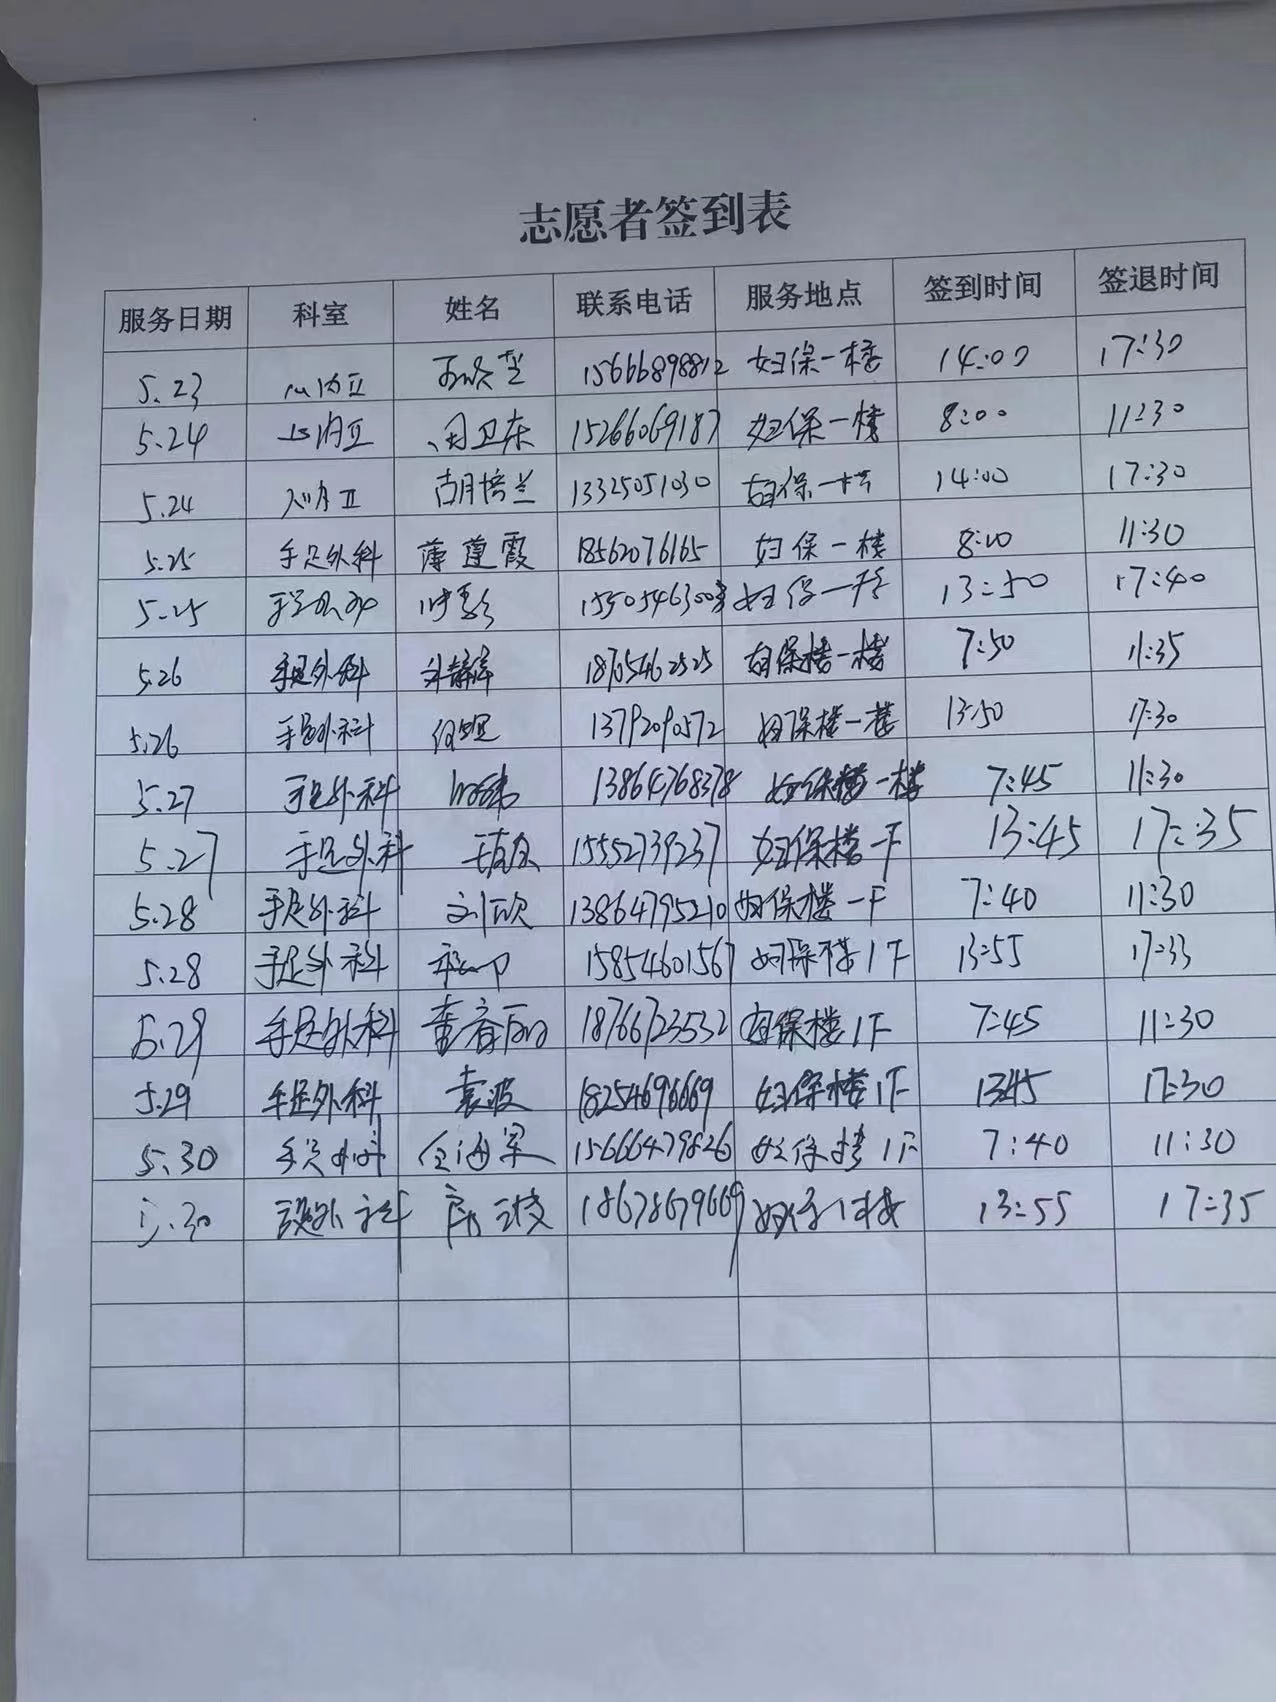 志愿者签到表
服务日期 科室 姓名 联系电话 服务地点 签到时间 签退时间
5.23 心内Ⅱ 15666898812 妇保一楼 14:00 17:30
5.24 心内Ⅱ 周卫东 15266069187 妇保一楼 8:00 11:30
5.24 心内Ⅱ 胡培兰 13325051030 妇保一楼 14:00 17:30
5.25 手足外科 薄莲霞 18562076165 妇保一楼 8:00 11:30
5.25 手足外科 妇保一楼 13:50 17:40
5.26 手足外科 18705462525 妇保楼一楼 7:50 11:35
5.26 手足外科 13792090572 妇保楼一楼 13:50 17:30
5.27 手足外科 13864768378 妇保楼一楼 7:45 11:30
5.27 手足外科 15552739237 妇保楼一F 13:45 17:35
5.28 手足外科 刘欣 13864795210 妇保楼一F 7:40 11:30
5.28 手足外科 15854601567 妇保楼1F 13:55 17:33
5.29 手足外科 董春丽 18766723532 妇保楼1F 7:45 11:30
5.29 手足外科 袁波 18254696669 妇保楼1F 1345 17:30
5.30 手足外科 任海军 15666479826 妇保楼1F 7:40 11:30
5.30 手足外科 18678679669 妇保1楼 13:55 17:35